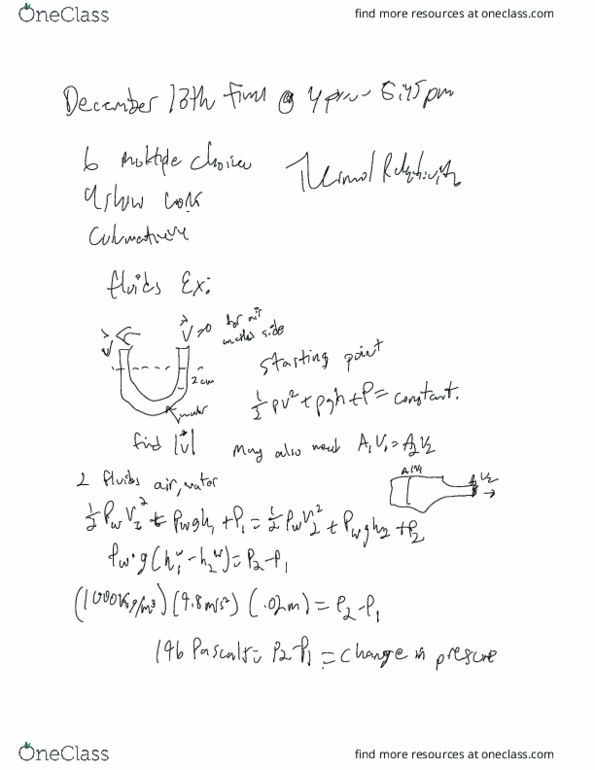 OneClass
find more resources at oneclass.com
December 13th Final @ 4pm - 6:45pm
6 multiple choice
Thermal Relativity
9 show work
Culmative
fluids Ex:
V
V=0 for air
another side
2 cm
water
Starting point
½ρv²+ρgh+P=constant.
find |v|
May also need A₁V₁=A₂V₂
2 fluids air, water
A₁V₁
V₂
½ρwV₁²+ρwgh₁+P₁=½ρwV₂²+ρwgh₂+P₂
ρw·g(h₁ʷ-h₂ʷ)=P₂-P₁
(1000kg/m³)(9.8m/s²)(.02m)=P₂-P₁
196 Pascals=P₂-P₁=change in pressure
OneClass
find more resources at oneclass.com